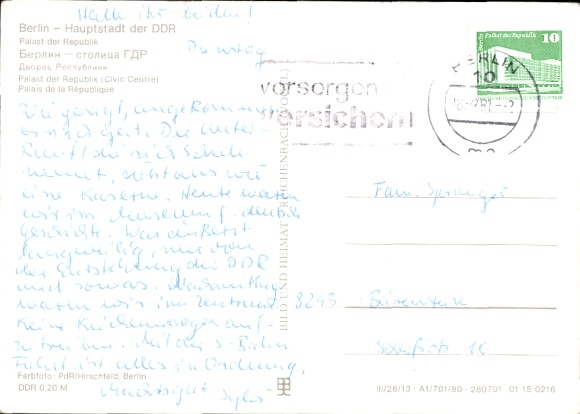 Hallo ihr beiden!
Berlin – Hauptstadt der DDR
Palast der Republik
Берлин – столица ГДР
Дворец Республики
Palast der Republik (Civic Centre)
Palais de la République
Dienstag
Palast der Republik 10
DDR
BERLIN
10
vorsorgen
versichern
Wie gesagt, angekommen
sind wir gut. Die Unter-
kunft die sich Schule
nennt, sieht aus wie
eine Kaserne. Heute waren
wir im Museum f. deutsche
Geschichte. War äußerst
langweilig, nur von
der Entstehung der DDR
und sowas. Nachmittag
waren wir im Zentrum
keine
auf-
zutreiben. Mit der S-Bahn
Fahrt ist alles in Ordnung.
Macht's gut
Fam. Sprenger
8245 Bärenstein
10
BILD UND HEIMAT REICHENBACH (VOGTL)
Farbfoto: PdR/Hirschfeld, Berlin
DDR 0,20 M
III/26/13 · A1/701/80 · 280701 01 15 0216